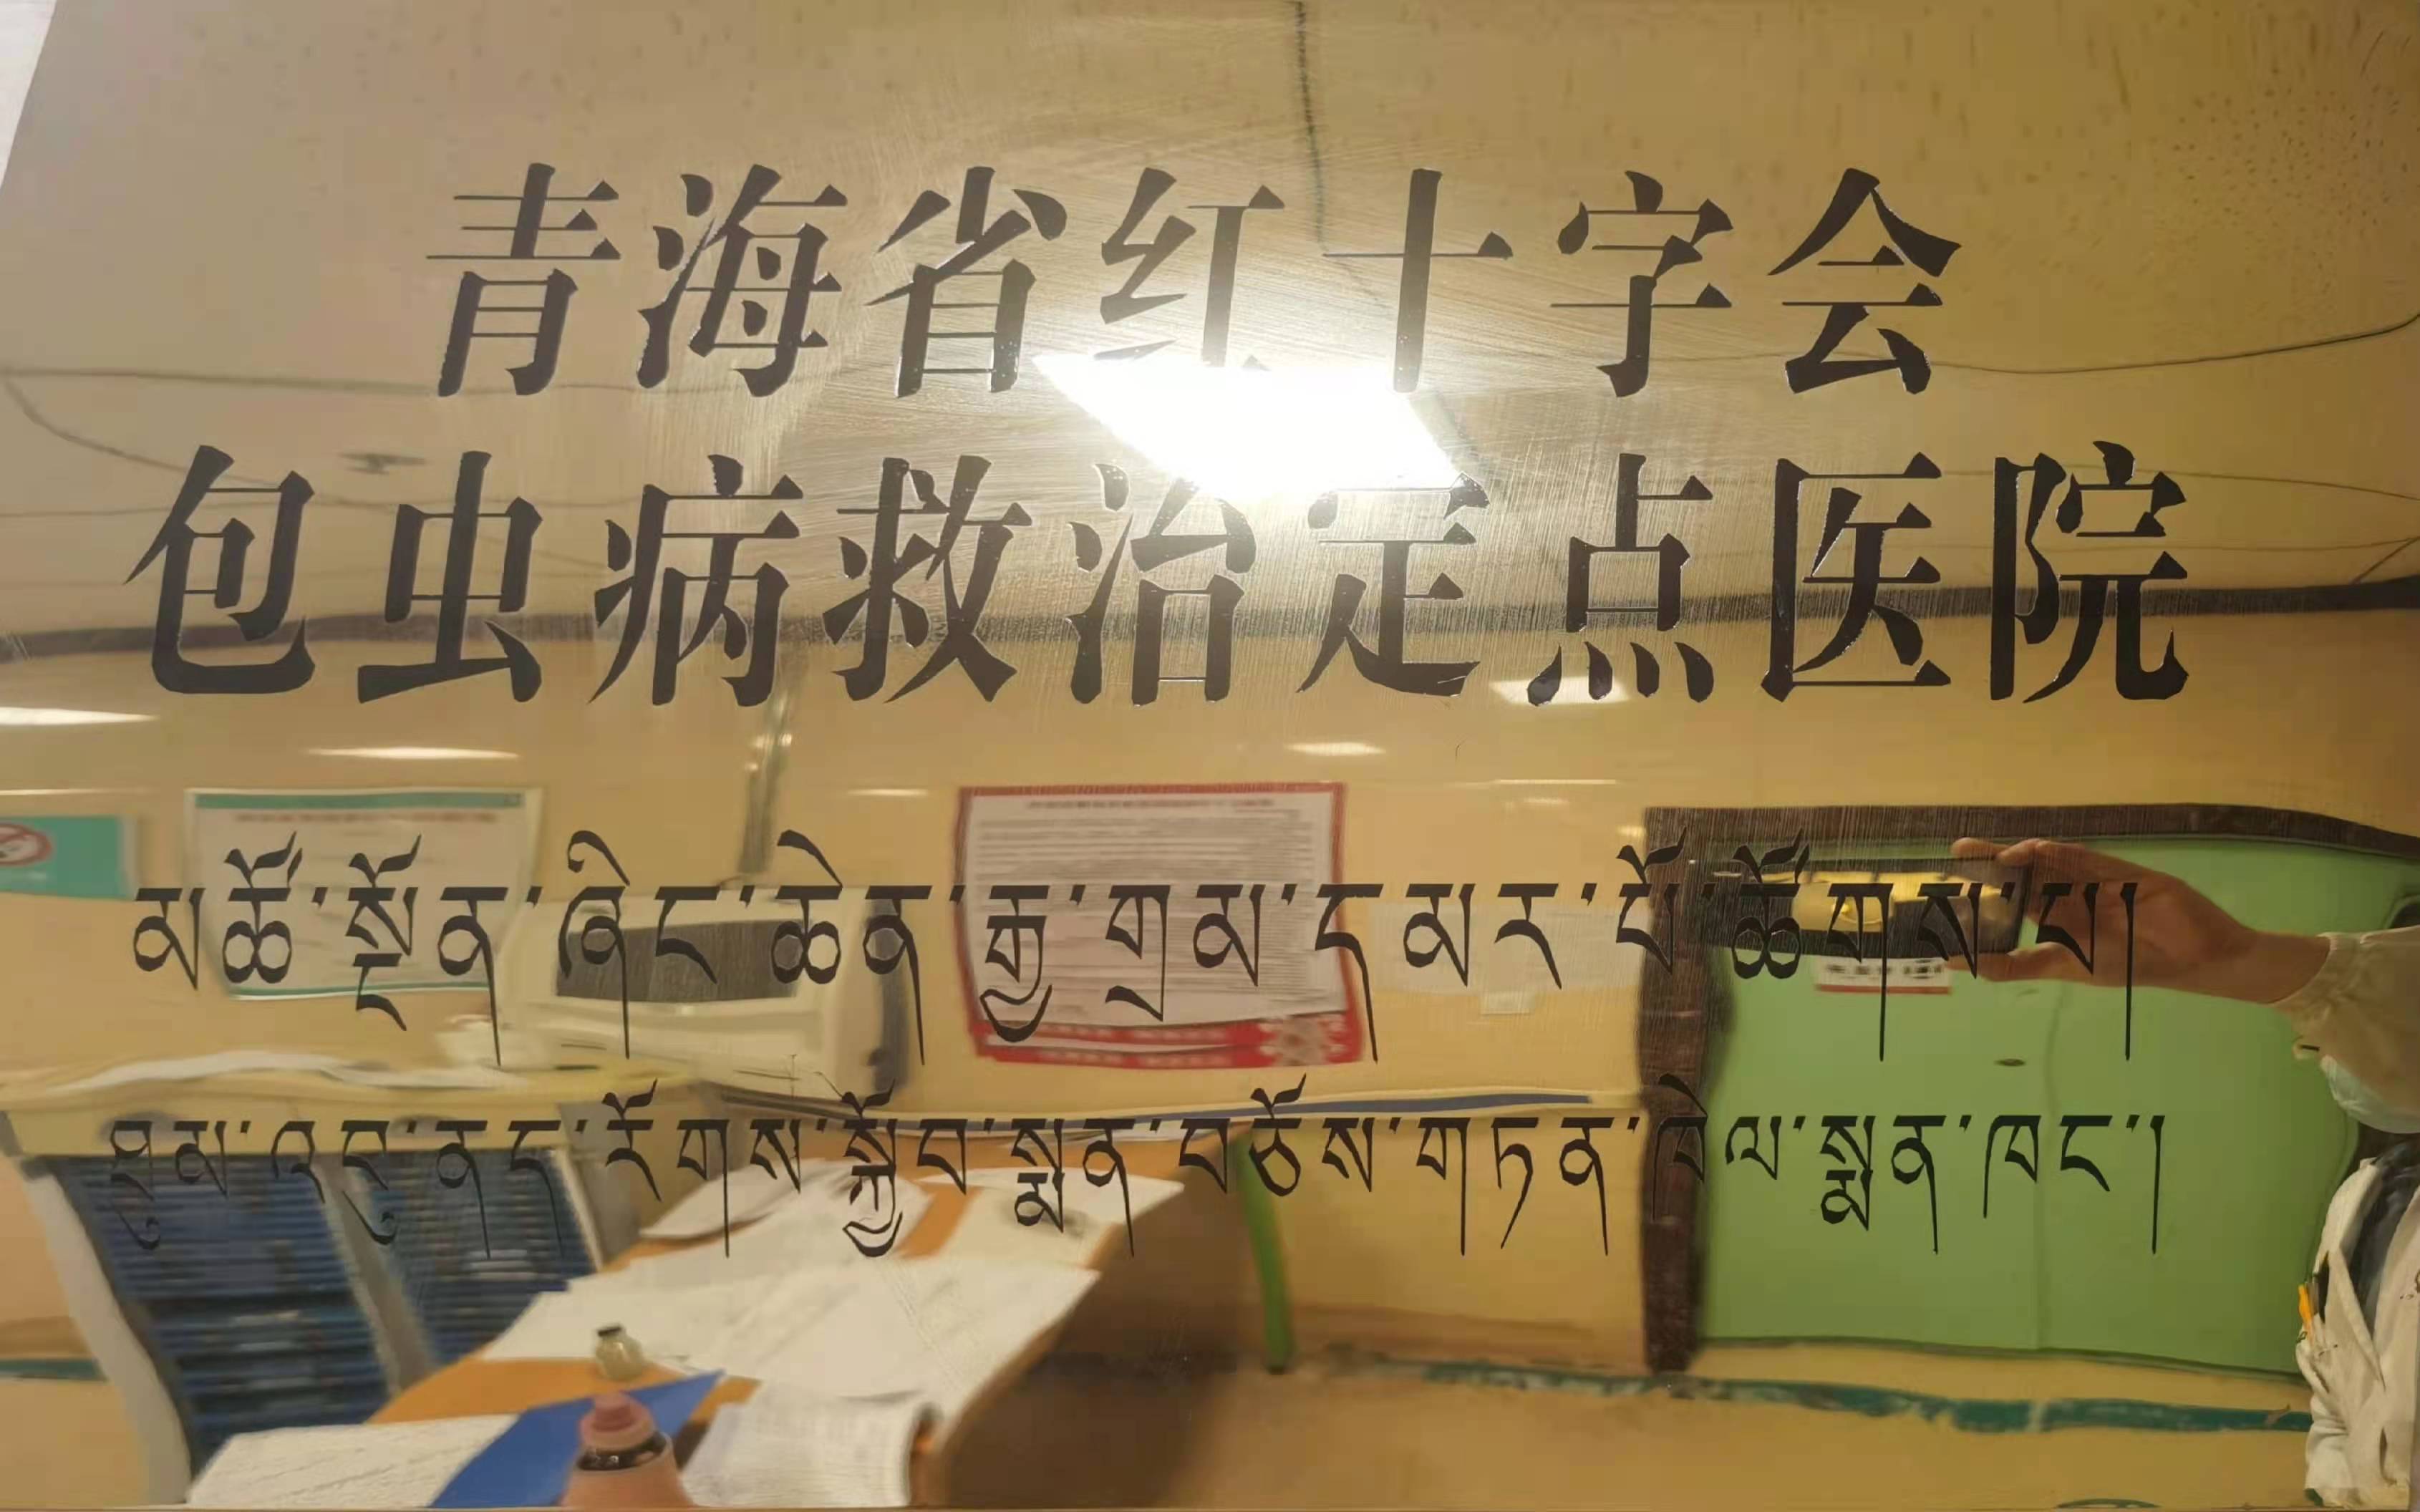 青海省红十字会
包虫病救治定点医院
མཚོ་སྔོན་ཞིང་ཆེན་རྒྱ་གྲམ་དམར་པོ་ཚོགས་པ།
ཐུམ་འབུ་ནད་རིགས་སྐྱོབ་སྨན་བཅོས་གཏན་ཁེལ་སྨན་ཁང་།